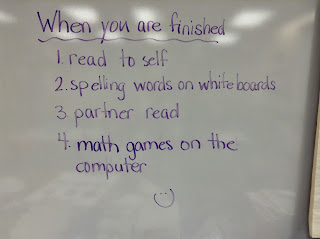 When you are finished
1. read to self
2. spelling words on whiteboards
3. partner read
4. math games on the
computer